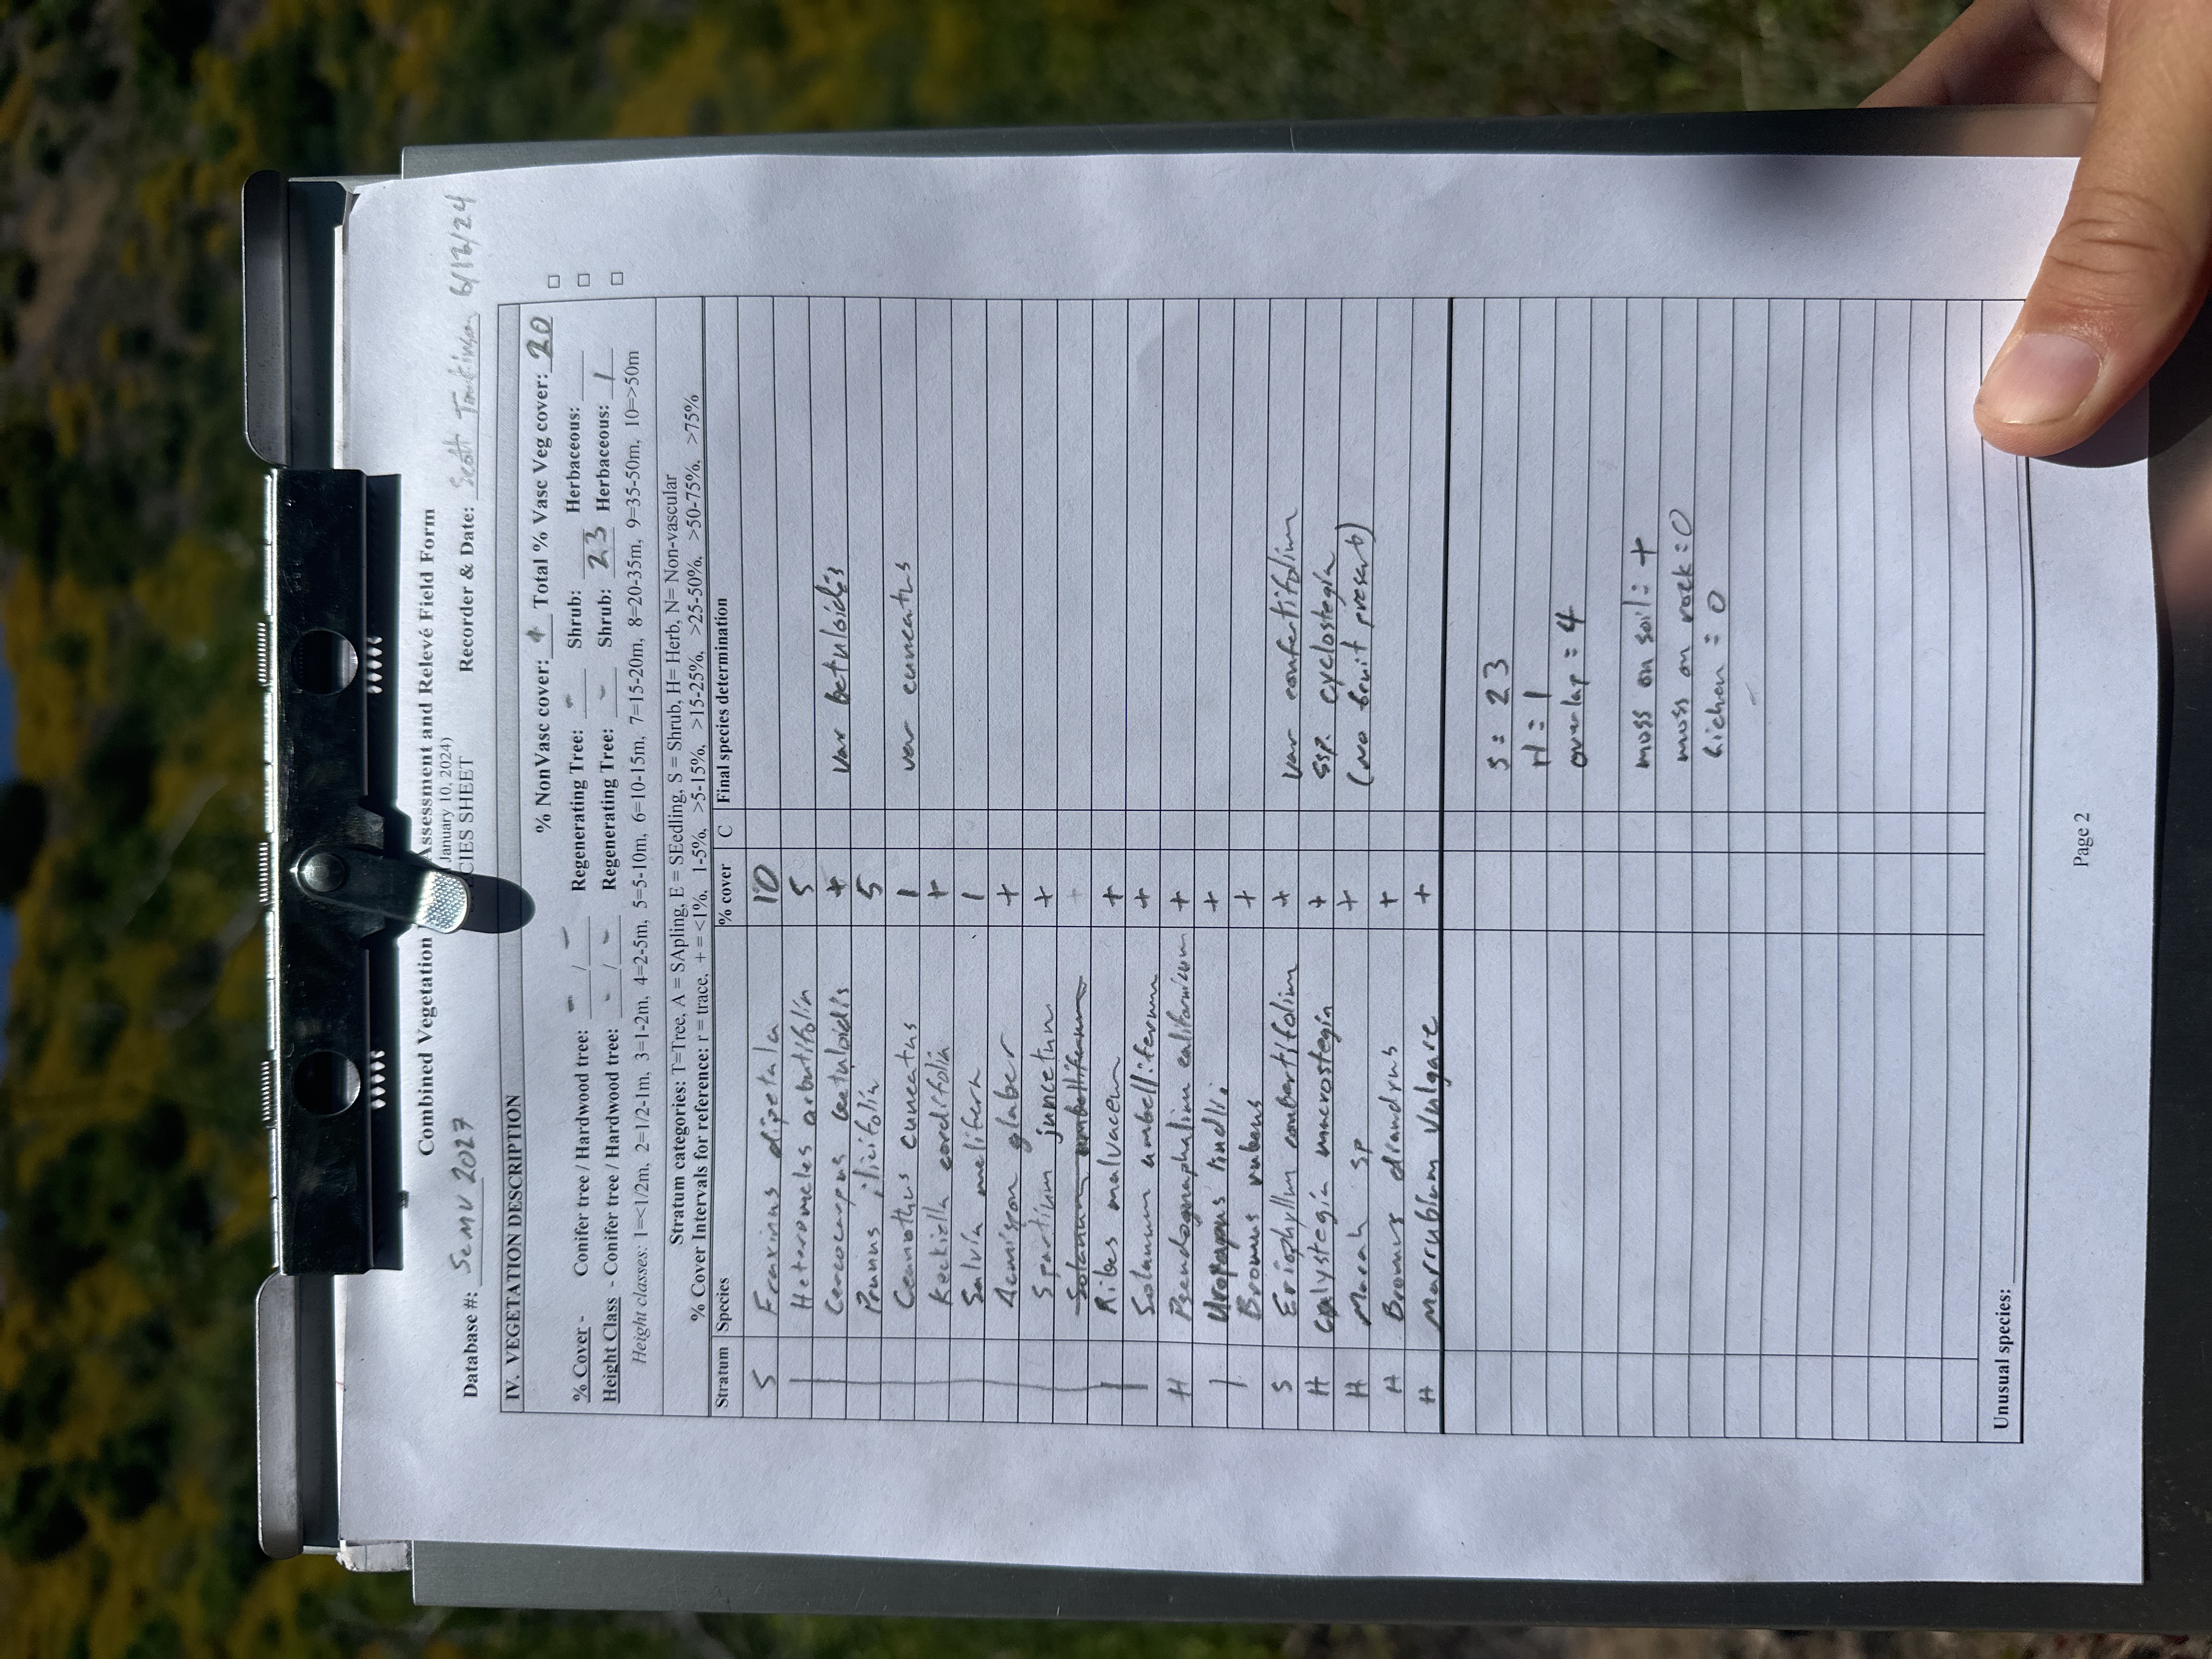 Combined Vegetation Assessment and Relevé Field Form
January 10, 2024)
CIES SHEET
Database #: SEMU 2027 Recorder & Date: Scott Tomkinson 6/12/24
IV. VEGETATION DESCRIPTION
% NonVasc cover: + Total % Vasc Veg cover: 20
% Cover - Conifer tree / Hardwood tree: - / - Regenerating Tree: - Shrub: 23 Herbaceous: 1
Height Class - Conifer tree / Hardwood tree: - / - Regenerating Tree: - Shrub: Herbaceous:
Height classes: 1=<1/2m, 2=1/2-1m, 3=1-2m, 4=2-5m, 5=5-10m, 6=10-15m, 7=15-20m, 8=20-35m, 9=35-50m, 10=>50m
Stratum categories: T=Tree, A = SApling, E = SEedling, S = Shrub, H= Herb, N= Non-vascular
% Cover Intervals for reference: r = trace, + = <1%, 1-5%, >5-15%, >15-25%, >25-50%, >50-75%, >75%
Stratum Species % cover C Final species determination
S Fraxinus dipetala 10
Heteromeles arbutifolia 5
Cercocarpus betuloides + var betuloides
Prunus ilicifolia 5
Ceanothus cuneatus 1 var cuneatus
Keckiella cordifolia +
Salvia melifera 1
Acmispon glaber +
Spartium junceum +
Solanum umbelliferum +
Ribes malvaceum +
Solanum umbelliferum +
H Pseudognaphalium californicum +
Uropappus lindlii +
Bromus rubens +
S Eriophyllum confertifolium + var confertifolium
H Calystegia macrostegia + ssp. cyclostegia
H Marah sp + (no fruit present)
H Bromus diandrus +
H Marrubium vulgare +
S = 23
H = 1
overlap = 4
moss on soil: +
moss on rock: 0
lichen = 0
Unusual species:
Page 2